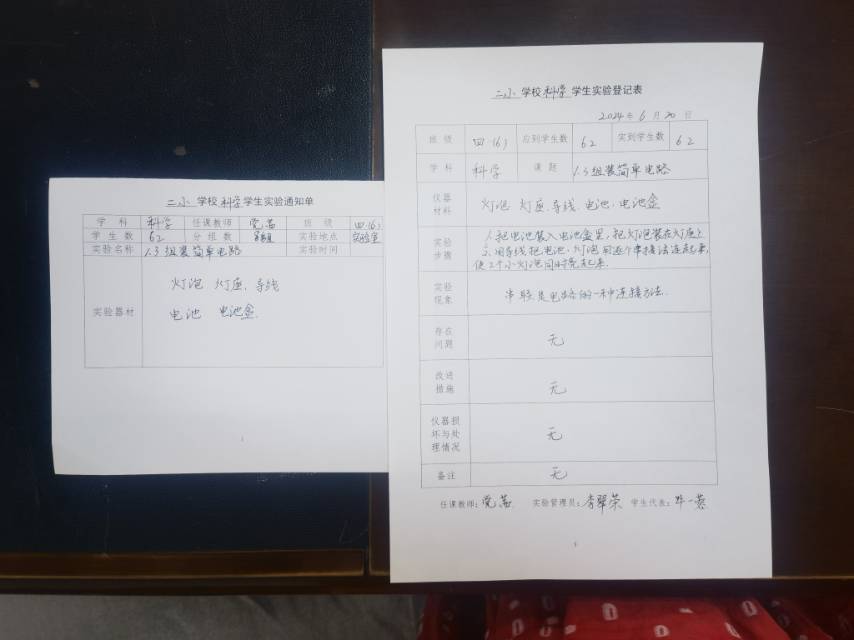 二小 学校 科学 学生实验通知单
学 科 科学 任课教师 党茜 班 级 四(6)
学 生 数 62 分 组 数 实验地点 实验室
实验名称 1.3组装简单电路 实验时间
实验器材 灯泡 灯座 导线
电池 电池盒.
二小 学校 科学 学生实验登记表
2024 年 6 月 20 日
班 级 四(6) 应到学生数 62 实到学生数 62
学 科 科学 课 题 1.3组装简单电路
仪器材料 灯泡 灯座 导线、电池、电池盒
实验步骤 1.把电池装入电池盒里,把灯泡装在灯座上
2.用导线把电池、灯泡用逐个串接法连起来,
使2个小灯泡同时亮起来.
实验现象 串联是电路的一种连接方法.
存在问题 无
改进措施 无
仪器损坏与处理情况 无
备注 无
任课教师: 党茜 实验管理员: 李翠荣 学生代表: 牛一蓉